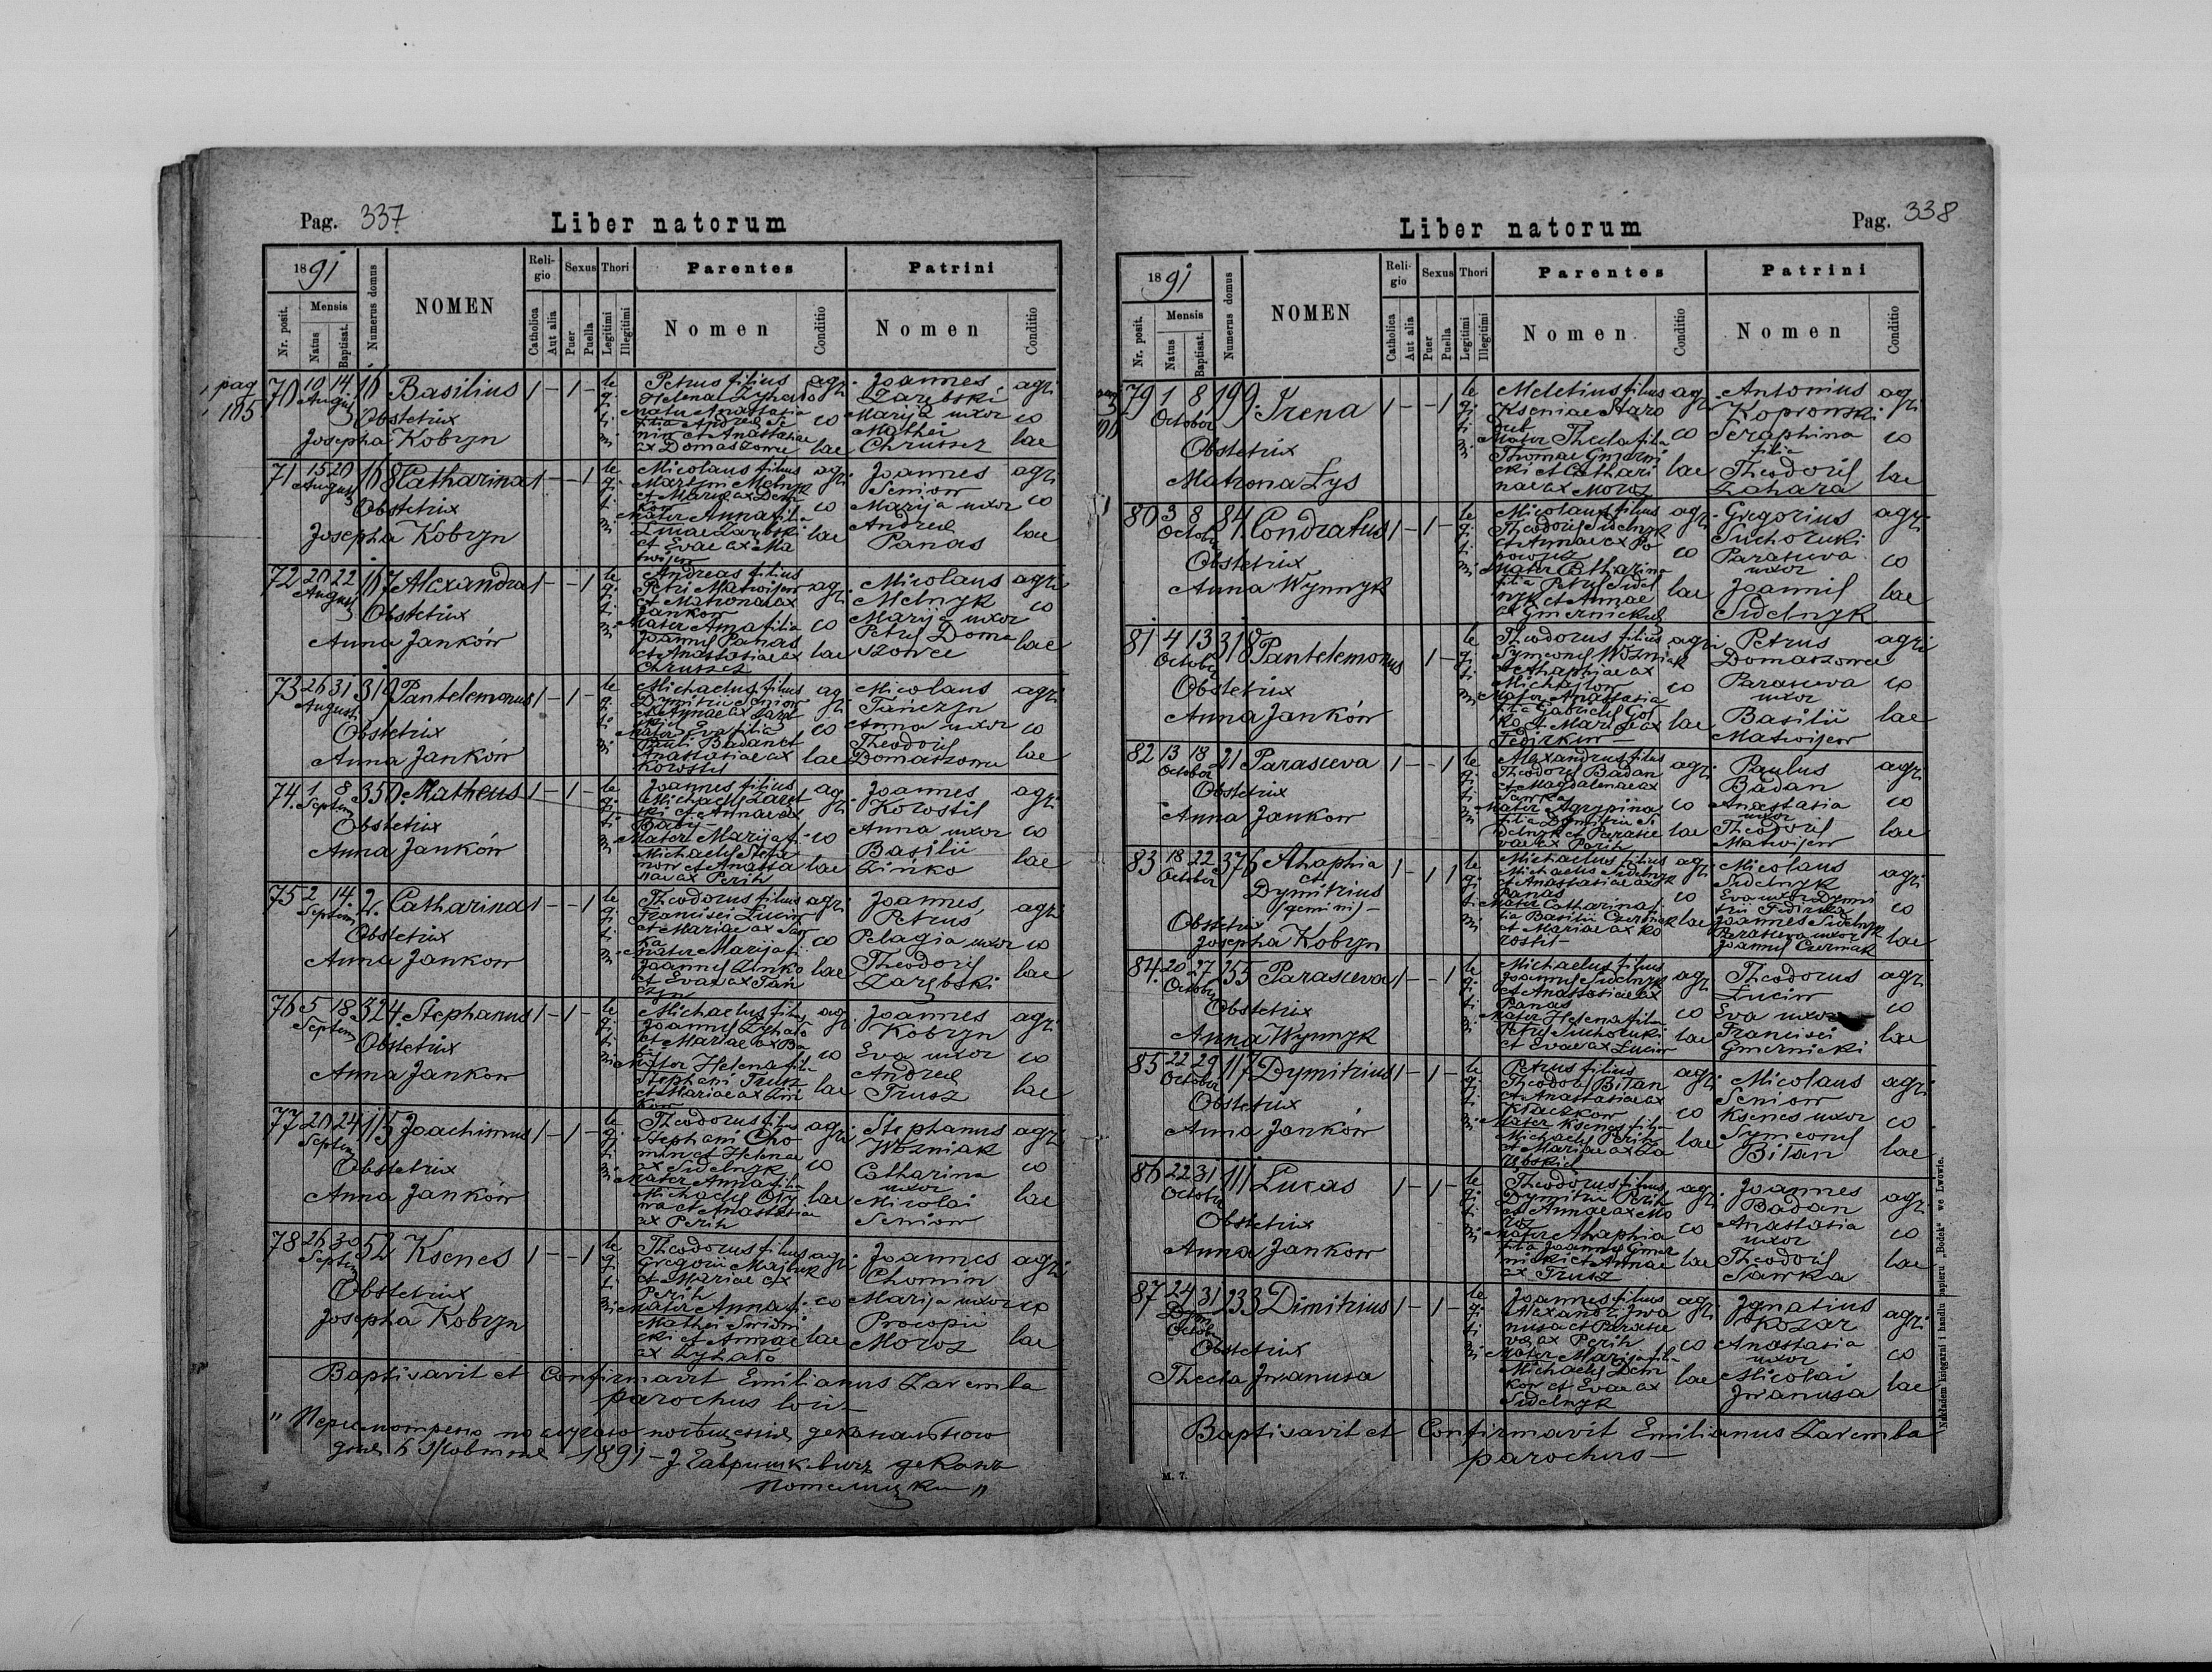 Pag. 337
Liber natorum
1891
Nr. posit.
Mensis
Natus
Baptisat.
Numerus domus
NOMEN
Religio
Catholica
Aut alia
Sexus
Puer
Puella
Thori
Legitimi
Illegitimi
Parentes
Nomen
Conditio
Patrini
Nomen
Conditio
pag
105
70 10 14 Augusti Basilius 1 - 1 -
Obstetrix
Josepha Kobryn
legitimi
Petrus filius
Mater Anastasia
filia Andreae Se
niw et Anastasiae
ex Domaszowec
agricolae
Joannes
Zarębski
Marija uxor
Mathei
Chrusscz
agricolae
71 15 20 August 168 Catharina 1 - - 1
Obstetrix
Josepha Kobryn
legitimi
Nicolaus filius
Martyn Melnyk
et Mariae ex Dem
kow
Mater Anna filia
Lucae Zarębski
et Evae ex Ma
twijew
agricolae
Joannes
Seniow
Marija uxor
Andreae
Panas
agricolae
72 20 22 August 167 Alexandra 1 - - 1
Obstetrix
Anna Janków
legitimi
Andreas filius
Petri Matwijew
et Matronae ex
Jankow
Mater Anna filia
Joannis Panas
et Anastasiae ex
Chrussez
agricolae
Nicolaus
Melnyk
Marija uxor
Petri Doma
szowec
agricolae
73 26 31 August 319 Pantelemonus 1 - 1 -
Obstetrix
Anna Janków
legitimi
Michaelus filius
Dymitrii Seniow
et Annae ex Zarę
bski
Mater Eva filia
Pauli Badan et
Anastasiae ex
Korostil
agricolae
Nicolaus
Tanczyn
Anna uxor
Theodori
Domaszowec
agricolae
74 1 8 Septem 350 Matheus 1 - 1 -
Obstetrix
Anna Janków
legitimi
Joannes filius
Michaelis Zaręb
ski et Annae ex
Baby
Mater Marija fi
Michaelis
et Anasta
siae ex Perih
agricolae
Joannes
Korostil
Anna uxor
Basilii
Zinko
agricolae
75 2 14 Septem 2 Catharina 1 - - 1
Obstetrix
Anna Jankow
legitimi
Theodorus filius
Francisci Luciw
et Mariae ex Saw
ka
Mater Marija fi
Joannis Zinko
et Evae ex Tan
czyn
agricolae
Joannes
Petrus
Pelagia uxor
Theodori
Zarębski
agricolae
76 5 18 Septem 324 Stephanus 1 - 1 -
Obstetrix
Anna Jankow
legitimi
Michaelus filius
Joannis Zyhało
et Mariae ex Ba
Mater Helena filia
Stephani Trusz
et Mariae ex Zin
kow
agricolae
Joannes
Kobryn
Eva uxor
Andreae
Trusz
agricolae
77 20 24 Septem 115 Joachimus 1 - 1 -
Obstetrix
Anna Janków
legitimi
Theodorus filius
Stephani Cho
min et Helenae
ex Sidelnyk
Mater Anna filia
Michaelis
et Anastasiae
ex Perih
agricolae
Stephanus
Wozniak
Catharina
uxor
Nicolai
Seniow
agricolae
78 26 30 Septem 52 Ksenes 1 - - 1
Obstetrix
Josepha Kobryn
legitimi
Theodorus filius
Gregorii Majbuk
et Mariae ex
Perih
Mater Anna fi
Mathei Swidni
cki et Annae
ex Zyhało
agricolae
Joannes
Chomin
Marija uxor
Procopii
Moroz
agricolae
Baptisavit et Confirmavit Emilianus Zaremba
parochus loci
1891 -
Liber natorum
Pag. 338
1891
Nr. posit.
Mensis
Natus
Baptisat.
Numerus domus
NOMEN
Religio
Catholica
Aut alia
Sexus
Puer
Puella
Thori
Legitimi
Illegitimi
Parentes
Nomen
Conditio
Patrini
Nomen
Conditio
79 1 8 October 199 Irena 1 - - 1
Obstetrix
Matrona Lys
legitimi
Meletius filius
Kseniae Staro
dub
Mater Thecla filia
Thomae Gmerni
cki et Cathari
nae ex Moroz
agricolae
Antonius
Kopronski
Seraphina
filia
Theodorij
Zahara
agricolae
80 3 8 October 84 Condratus 1 - 1 -
Obstetrix
Anna Wynnyk
legitimi
Nicolaus filius
Theodori Sidelnyk
et Annae ex Po
powycz
Mater Catharina
filia Petri Sidel
nyk et Annae
ex Gmernicki
agricolae
Gregorius
Suchoruki
Parasceva
uxor
Joannis
Sidelnyk
agricolae
81 4 13 October 318 Pantelemonus 1 -
Obstetrix
Anna Janków
legitimi
Theodorus filius
Symeonis Wozniak
et Ahaphiae ex
Michajlow
Mater Anastasia
filia Gabrielis Goj
ko et Mariae ex
Fedirkiw
agricolae
Petrus
Domaszowec
Parasceva
uxor
Basilii
Matwijew
agricolae
82 13 18 October 21 Parasceva 1 - - 1
Obstetrix
Anna Jankow
legitimi
Alexandrus filius
Theodori Badan
et Magdalenae ex
Sawka
Mater Agrypina
filia Dymitrii Si
delnyk et Parasce
vae ex Perih
agricolae
Paulus
Badan
Anastasia
uxor
Theodorij
Matwijew
agricolae
83 18 22 October 376 Ahaphia
et
Dymitrius
(gemini) -
1 - 1 1
Obstetrix
Josepha Kobryn
legitimi
Michaelus filius
Michaelis Sidelnyk
et Anastasiae ex
Panas
Mater Catharina fi
lia Basilii Czerniak
et Mariae ex Ko
rostil -
agricolae
Nicolaus
Sidelnyk
Eva uxor Dymi
trii Fedirko
Joannes Sidelnyk
Parasceva uxor
Joannis Czerniak
agricolae
84 20 27 October 155 Parasceva 1 - - 1
Obstetrix
Anna Wynnyk
legitimi
Michaelus filius
Joannis Sidelnyk
et Anastasiae ex
Panas
Mater Helena filia
Petri Suchoruki
et Evae ex Luciw
agricolae
Theodorus
Luciw
Eva uxor
Francisci
Gmernicki
agricolae
85 22 29 October 117 Dymitrius 1 - 1 -
Obstetrix
Anna Janków
legitimi
Petrus filius
Theodori Bilan
et Anastasiae ex
Klaczkow
Mater Ksenes filia
Michaelis Perih
et Mariae ex Za
rębski
agricolae
Nicolaus
Seniow
Ksenes uxor
Symeonis
Bilan
agricolae
86 22 31 October 111 Lucas 1 - 1 -
Obstetrix
Anna Jankow
legitimi
Theodorus filius
Dymitrii Perih
et Annae ex Mo
roz
Mater Ahaphia
filia Joannis Gmer
nicki et Annae
ex Trusz
agricolae
Joannes
Badan
Anastasia
uxor
Theodorij
Sawka
agricolae
87 24 31 October 233 Dimitrius 1 - 1 -
Obstetrix
Thecla Jwanusa
legitimi
Joannes filius
Alexandri Jwa
nusa et Parasce
vae ex Perih
Mater Marija filia
Michaelis Dem
kow et Evae ex
Sidelnyk
agricolae
Jgnatius
Kozar
Anastasia
uxor
Nicolai
Jwanusa
agricolae
Baptisavit et Confirmavit Emilianus Zaremba
parochus -
M. 7.
Nakładem księgarni i handlu papieru „Bodek“ we Lwowie.